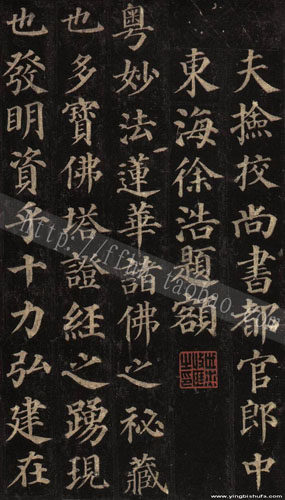 夫撿挍尚書都官郎中
東海徐浩題額
粵妙法蓮華諸佛之祕藏
也多寶佛塔證經之踴現
也發明資乎十力弘建在
www.yingbishufa.com